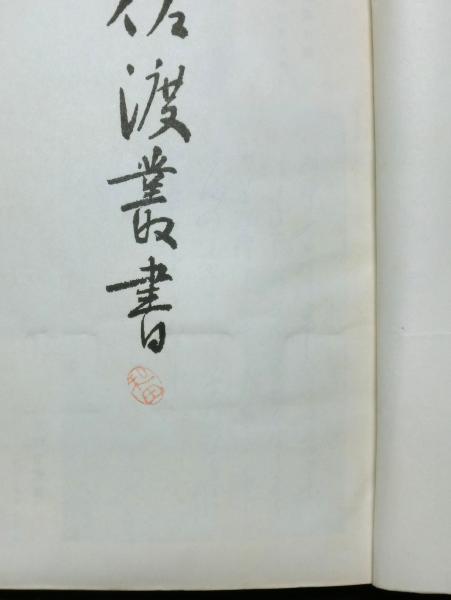 佐渡叢書